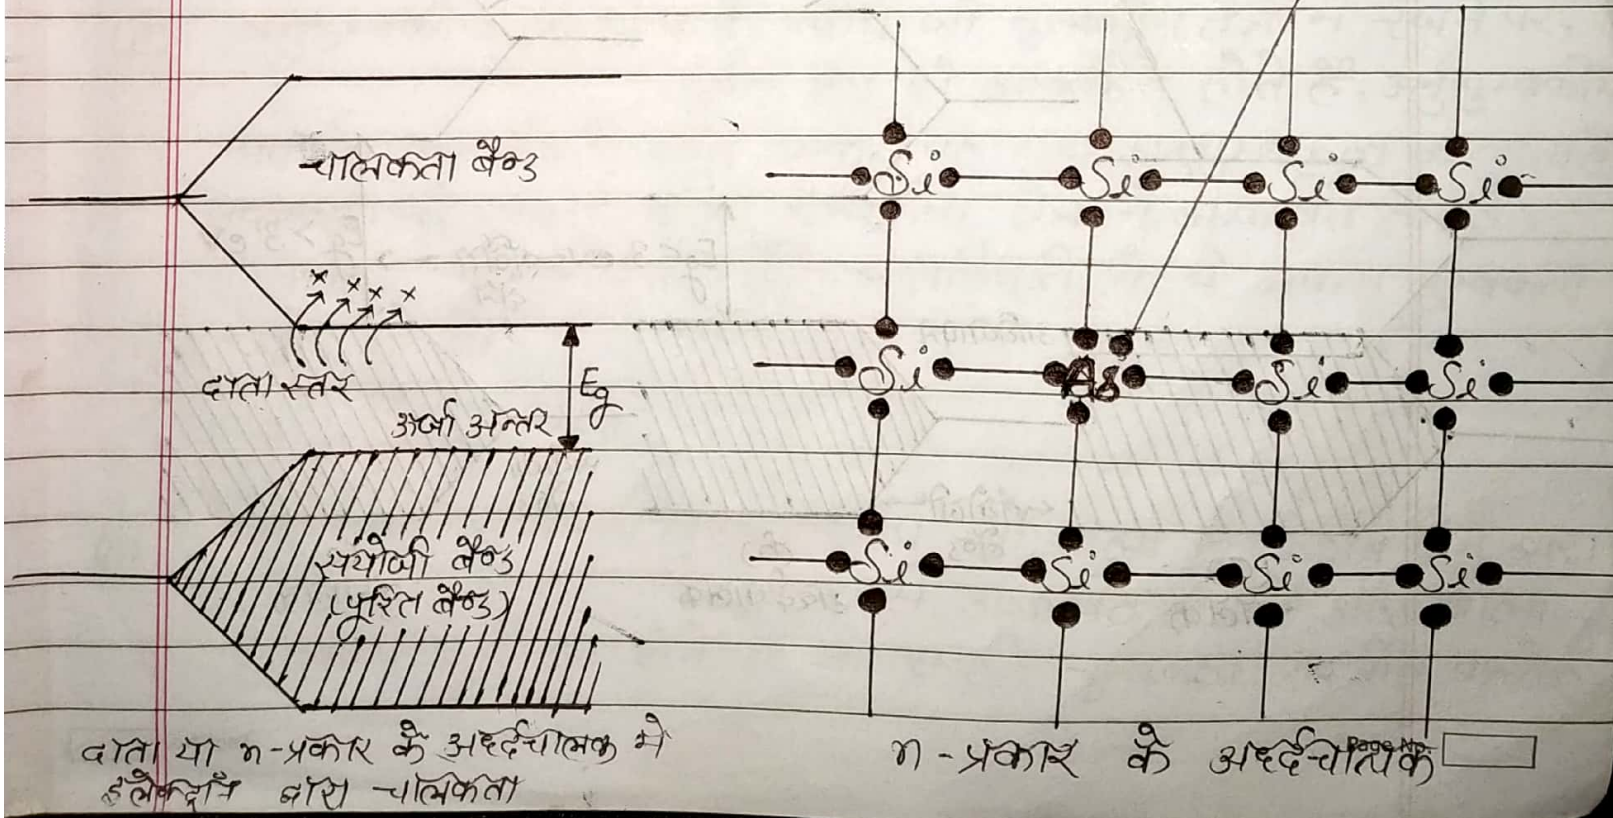 चालकता बैण्ड
दाता स्तर
ऊर्जा अन्तर
Eg
संयोजी बैण्ड
(पूरित बैण्ड)
दाता या n-प्रकार के अर्द्धचालक मे
इलेक्ट्रॉन द्वारा चालकता
Si Si Si Si
Si As Si Si
Si Si Si Si
n-प्रकार के अर्द्धचालक
Page No.